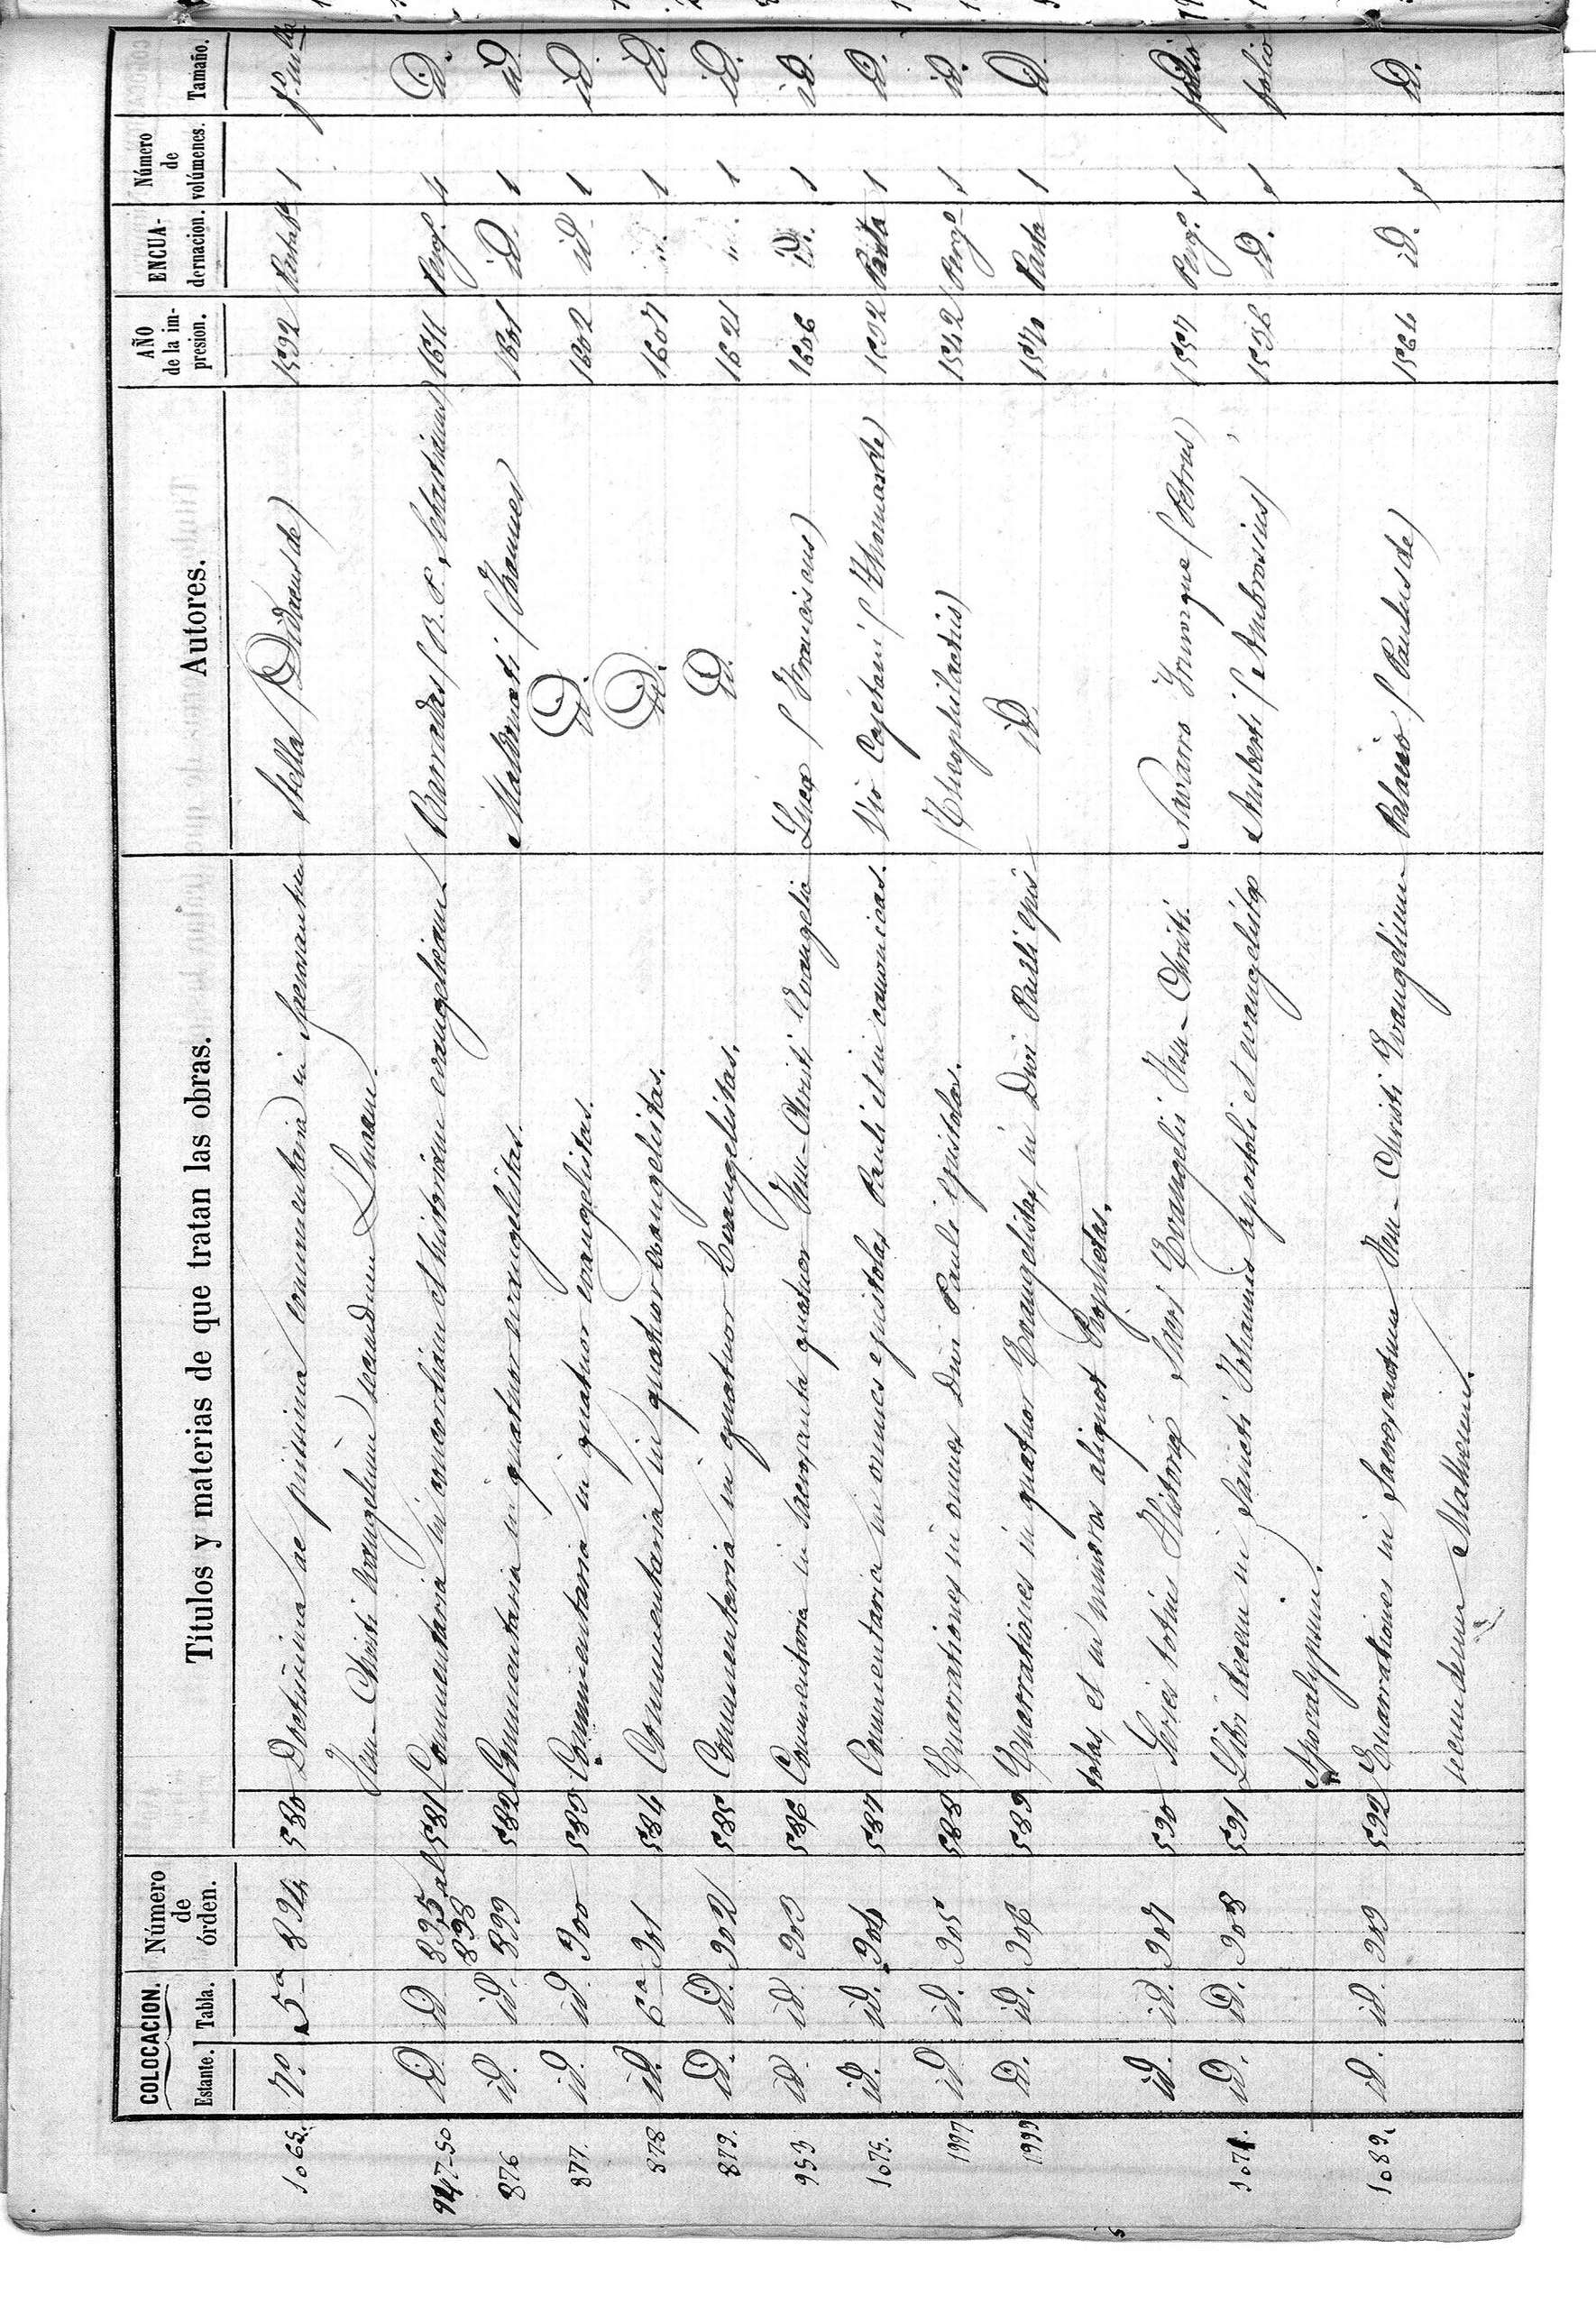 COLOCACION.
Estante. Tabla. Número de órden. Títulos y materias de que tratan las obras. Autores. AÑO de la impresion. ENCUADERNACION. Número de volúmenes. Tamaño.
1065. 7º 5ª 894 580 Doctissima ac pissima commentaria in Sacrosantum Stella (Didacus de) 1592 1
Jesu-Christi Evangelium secundum Lucam.
947-50 iD iD 895 al 898 581 Commentaria in concordiam et historiam evangelicam Barradas (R. P. Sebastianus) 1611 Pergº 4 iD.
876 iD. iD. 899 582 Commentaria in quatuor evangelistas. Maldonati (Joannes 1601 iD. 1 iD.
877. iD. iD. 900 583 Commentaria in quatuor evangelistas. iD. 1602 iD. 1 iD.
878 iD. 6ª 901 584 Commentaria in quatuor evangelistas. iD. 1607 1 iD.
879. iD. iD. 902 585 Commentaria in quatuor Evangelistas. iD. 1621 1 iD.
953 iD. iD. 903 586 Commentaria in sacrosanta quatuor Jesu-Christi Evangelia Luca (Franciscus) 1606 iD. 1 iD.
1075. iD. iD. 904 587 Commentaria in omnes epistolas Pauli et in canonicas. Vio Cajetani (Thomas de) 1532 Pasta 1 iD.
1997 iD. iD. 905 588 Enarrationes in omnes Divi Pauli epistolas. (Theophilactus) 1542 Pergº 1 iD.
1999 iD. iD. 906 589 Enarrationes in quatuor Evangelistas, in Divi Paulli epis
tolas, et in minores aliquot Prophetas. iD 1570 Pasta 1 iD.
iD. iD. 907 590 Series totius Historiæ Sacri Evangelii Jesu-Christi. Navarro (Petrus) 1557 Pergº 1 folio
1071. iD. iD. 908 591 Libri decem in Sancti Johannis apostoli et evangelistæ Ansberti (Ambrosius) 1536 iD. 1 folio
Apocalypsim.
1089. iD. iD. 909 592 Enarrationes in Sacrosanctum Jesu-Christi Evangelium Palacio (Paulus de) 1564 iD. 1 iD.
secundum Matheum.